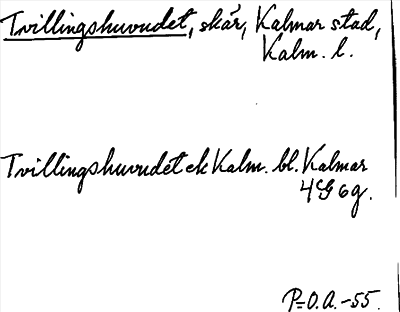 Tvillingshuvudet, skär, Kalmar stad,
Kalm. l.
Tvillingshuvudet ek Kalm. bl. Kalmar
4G 6g.
P=O.A.-55.